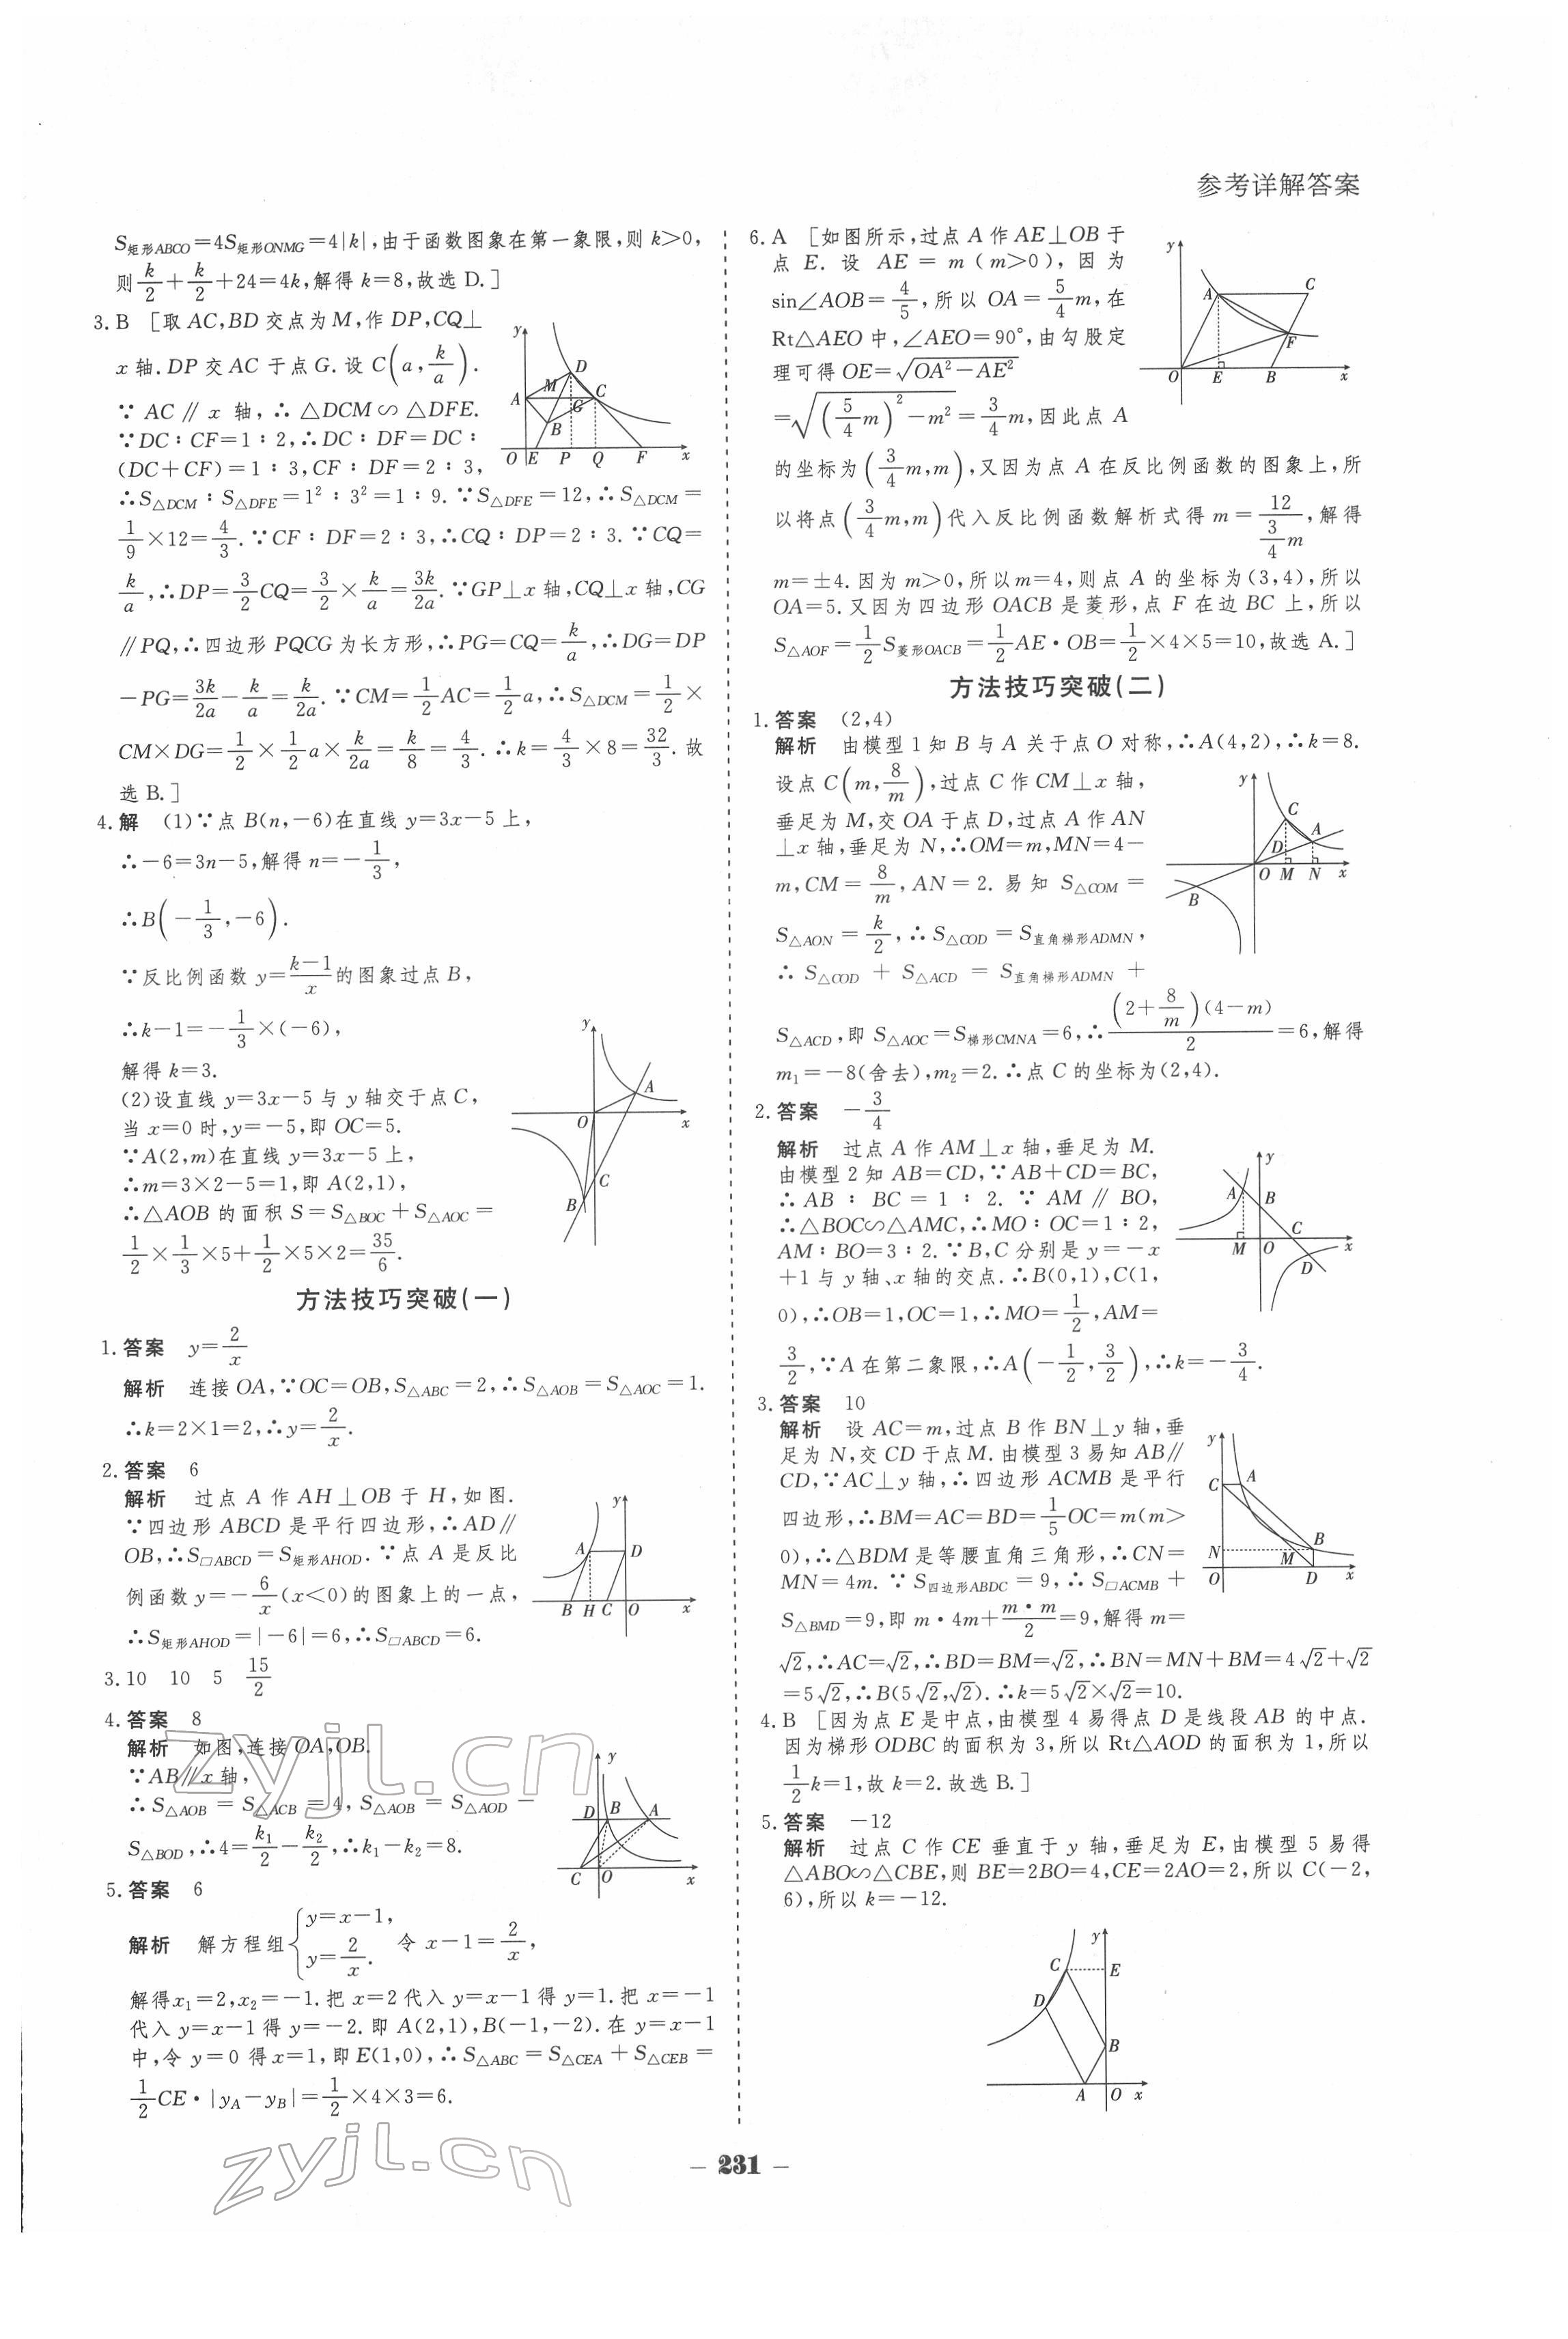 参考详解答案
S矩形ABCO=4S矩形ONMG=4|k|,由于函数图象在第一象限,则 k>0,
则k/2+k/2+24=4k,解得 k=8,故选 D.]
3.B [取 AC,BD 交点为 M,作 DP,CQ⊥
x 轴.DP 交 AC 于点 G.设 C(a,k/a).
∵ AC∥x 轴,∴△DCM∽△DFE.
∵DC∶CF=1∶2,∴DC∶DF=DC∶
(DC+CF)=1∶3,CF∶DF=2∶3,
∴S△DCM∶S△DFE=1²∶3²=1∶9.∵S△DFE=12,∴S△DCM=
1/9×12=4/3.∵CF∶DF=2∶3,∴CQ∶DP=2∶3.∵CQ=
k/a,∴DP=3/2CQ=3/2×k/a=3k/2a.∵GP⊥x 轴,CQ⊥x 轴,CG
∥PQ,∴四边形 PQCG 为长方形,∴PG=CQ=k/a,∴DG=DP
-PG=3k/2a-k/a=k/2a.∵CM=1/2AC=1/2a,∴S△DCM=1/2×
CM×DG=1/2×1/2a×k/2a=k/8=4/3.∴k=4/3×8=32/3.故
选 B.]
y
D
M
A
C
G
B
O E P Q F x
4.解 (1)∵点 B(n,-6)在直线 y=3x-5 上,
∴-6=3n-5,解得 n=-1/3,
∴B(-1/3,-6).
∵反比例函数 y=(k-1)/x的图象过点 B,
∴k-1=-1/3×(-6),
解得 k=3.
(2)设直线 y=3x-5 与 y 轴交于点 C,
当 x=0 时,y=-5,即 OC=5.
∵A(2,m)在直线 y=3x-5 上,
∴m=3×2-5=1,即 A(2,1),
∴△AOB 的面积 S=S△BOC+S△AOC=
1/2×1/3×5+1/2×5×2=35/6.
y
A
O x
C
B
方法技巧突破(一)
1.答案 y=2/x
解析 连接 OA,∵OC=OB,S△ABC=2,∴S△AOB=S△AOC=1.
∴k=2×1=2,∴y=2/x.
2.答案 6
解析 过点 A 作 AH⊥OB 于 H,如图.
∵四边形 ABCD 是平行四边形,∴AD∥
OB,∴S□ABCD=S矩形AHOD.∵点 A 是反比
例函数 y=-6/x(x<0)的图象上的一点,
∴S矩形AHOD=|-6|=6,∴S□ABCD=6.
y
A D
B H C O x
3.10 10 5 15/2
4.答案 8
解析 如图,连接 OA,OB.
∵AB∥x 轴,
∴S△AOB=S△ACB=4,S△AOB=S△AOD-
S△BOD,∴4=k₁/2-k₂/2,∴k₁-k₂=8.
y
D B A
C O x
5.答案 6
解析 解方程组{y=x-1, y=2/x. 令 x-1=2/x,
解得x₁=2,x₂=-1.把 x=2代入 y=x-1得 y=1.把 x=-1
代入 y=x-1 得 y=-2.即 A(2,1),B(-1,-2).在 y=x-1
中,令 y=0 得 x=1,即 E(1,0),∴S△ABC=S△CEA+S△CEB=
1/2CE·|yA-yB|=1/2×4×3=6.
6.A [如图所示,过点 A 作 AE⊥OB 于
点 E.设 AE=m(m>0),因为
sin∠AOB=4/5,所以 OA=5/4m,在
Rt△AEO 中,∠AEO=90°,由勾股定
理可得 OE=√(OA²-AE²)
=√((5/4m)²-m²)=3/4m,因此点 A
的坐标为(3/4m,m),又因为点 A 在反比例函数的图象上,所
以将点(3/4m,m)代入反比例函数解析式得 m=12/(3/4m),解得
m=±4.因为 m>0,所以m=4,则点 A 的坐标为(3,4),所以
OA=5.又因为四边形 OACB 是菱形,点 F 在边 BC 上,所以
S△AOF=1/2S菱形OACB=1/2AE·OB=1/2×4×5=10,故选 A.]
y
A C
F
O E B x
方法技巧突破(二)
1.答案 (2,4)
解析 由模型 1 知 B 与 A 关于点 O 对称,∴A(4,2),∴k=8.
设点 C(m,8/m),过点 C 作 CM⊥x 轴,
垂足为 M,交 OA 于点 D,过点 A 作 AN
⊥x 轴,垂足为 N,∴OM=m,MN=4-
m,CM=8/m,AN=2.易知 S△COM=
S△AON=k/2,∴S△COD=S直角梯形ADMN,
∴S△COD+S△ACD=S直角梯形ADMN+
S△ACD,即 S△AOC=S梯形CMNA=6,∴(2+8/m)(4-m)/2=6,解得
m₁=-8(舍去),m₂=2.∴点 C 的坐标为(2,4).
y
C
D A
O M N x
B
2.答案 -3/4
解析 过点 A 作 AM⊥x 轴,垂足为 M.
由模型 2 知 AB=CD,∵AB+CD=BC,
∴AB∶BC=1∶2.∵AM∥BO,
∴△BOC∽△AMC,∴MO∶OC=1∶2,
AM∶BO=3∶2.∵B,C 分别是 y=-x
+1 与 y 轴、x 轴的交点.∴B(0,1),C(1,
0),∴OB=1,OC=1,∴MO=1/2,AM=
3/2,∵A 在第二象限,∴A(-1/2,3/2),∴k=-3/4.
y
A B
C
M O x
D
3.答案 10
解析 设 AC=m,过点 B 作 BN⊥y 轴,垂
足为 N,交 CD 于点 M.由模型 3 易知 AB∥
CD,∵AC⊥y 轴,∴四边形 ACMB 是平行
四边形,∴BM=AC=BD=1/5OC=m(m>
0),∴△BDM 是等腰直角三角形,∴CN=
MN=4m.∵S四边形ABDC=9,∴S□ACMB+
S△BMD=9,即 m·4m+m·m/2=9,解得 m=
√2,∴AC=√2,∴BD=BM=√2,∴BN=MN+BM=4√2+√2
=5√2,∴B(5√2,√2).∴k=5√2×√2=10.
y
C A
B
N M
O D x
4.B [因为点 E 是中点,由模型 4 易得点 D 是线段 AB 的中点.
因为梯形 ODBC 的面积为 3,所以 Rt△AOD 的面积为 1,所以
1/2k=1,故 k=2.故选 B.]
5.答案 -12
解析 过点 C 作 CE 垂直于 y 轴,垂足为 E,由模型 5 易得
△ABO∽△CBE,则 BE=2BO=4,CE=2AO=2,所以 C(-2,
6),所以 k=-12.
y
C E
D
B
A O x
zyjl.cn
zyjl.cn
- 231 -